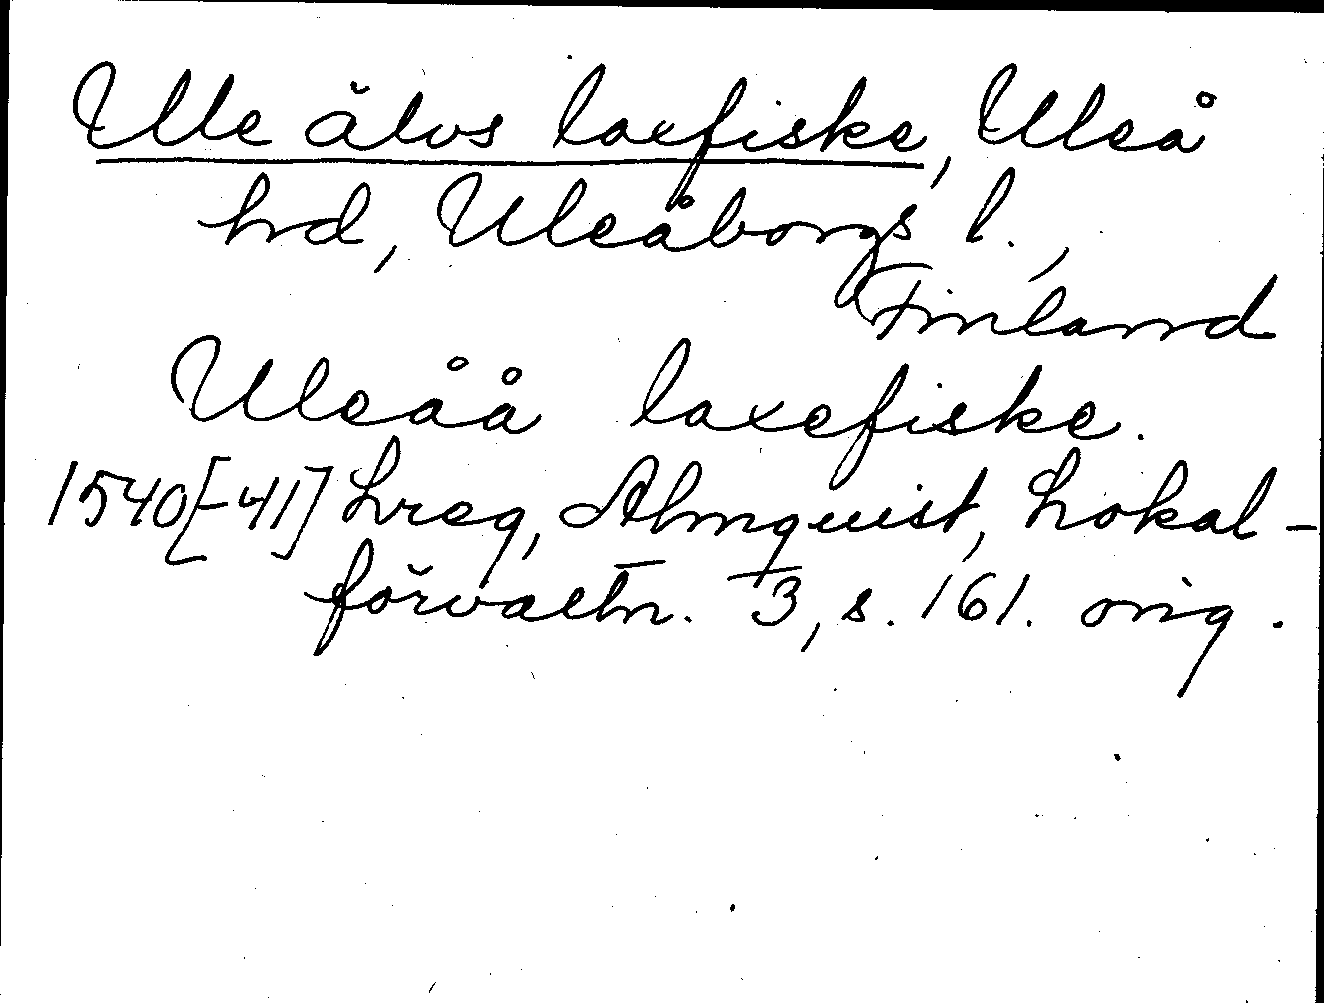 Ule älvs laxfiske, Uleå
hd, Uleåborgs l.,
Finland
Uleåå laxefiske.
1540[-41] Lreg, Almquist, Lokal-
förvaltn. 3, s. 161. orig.